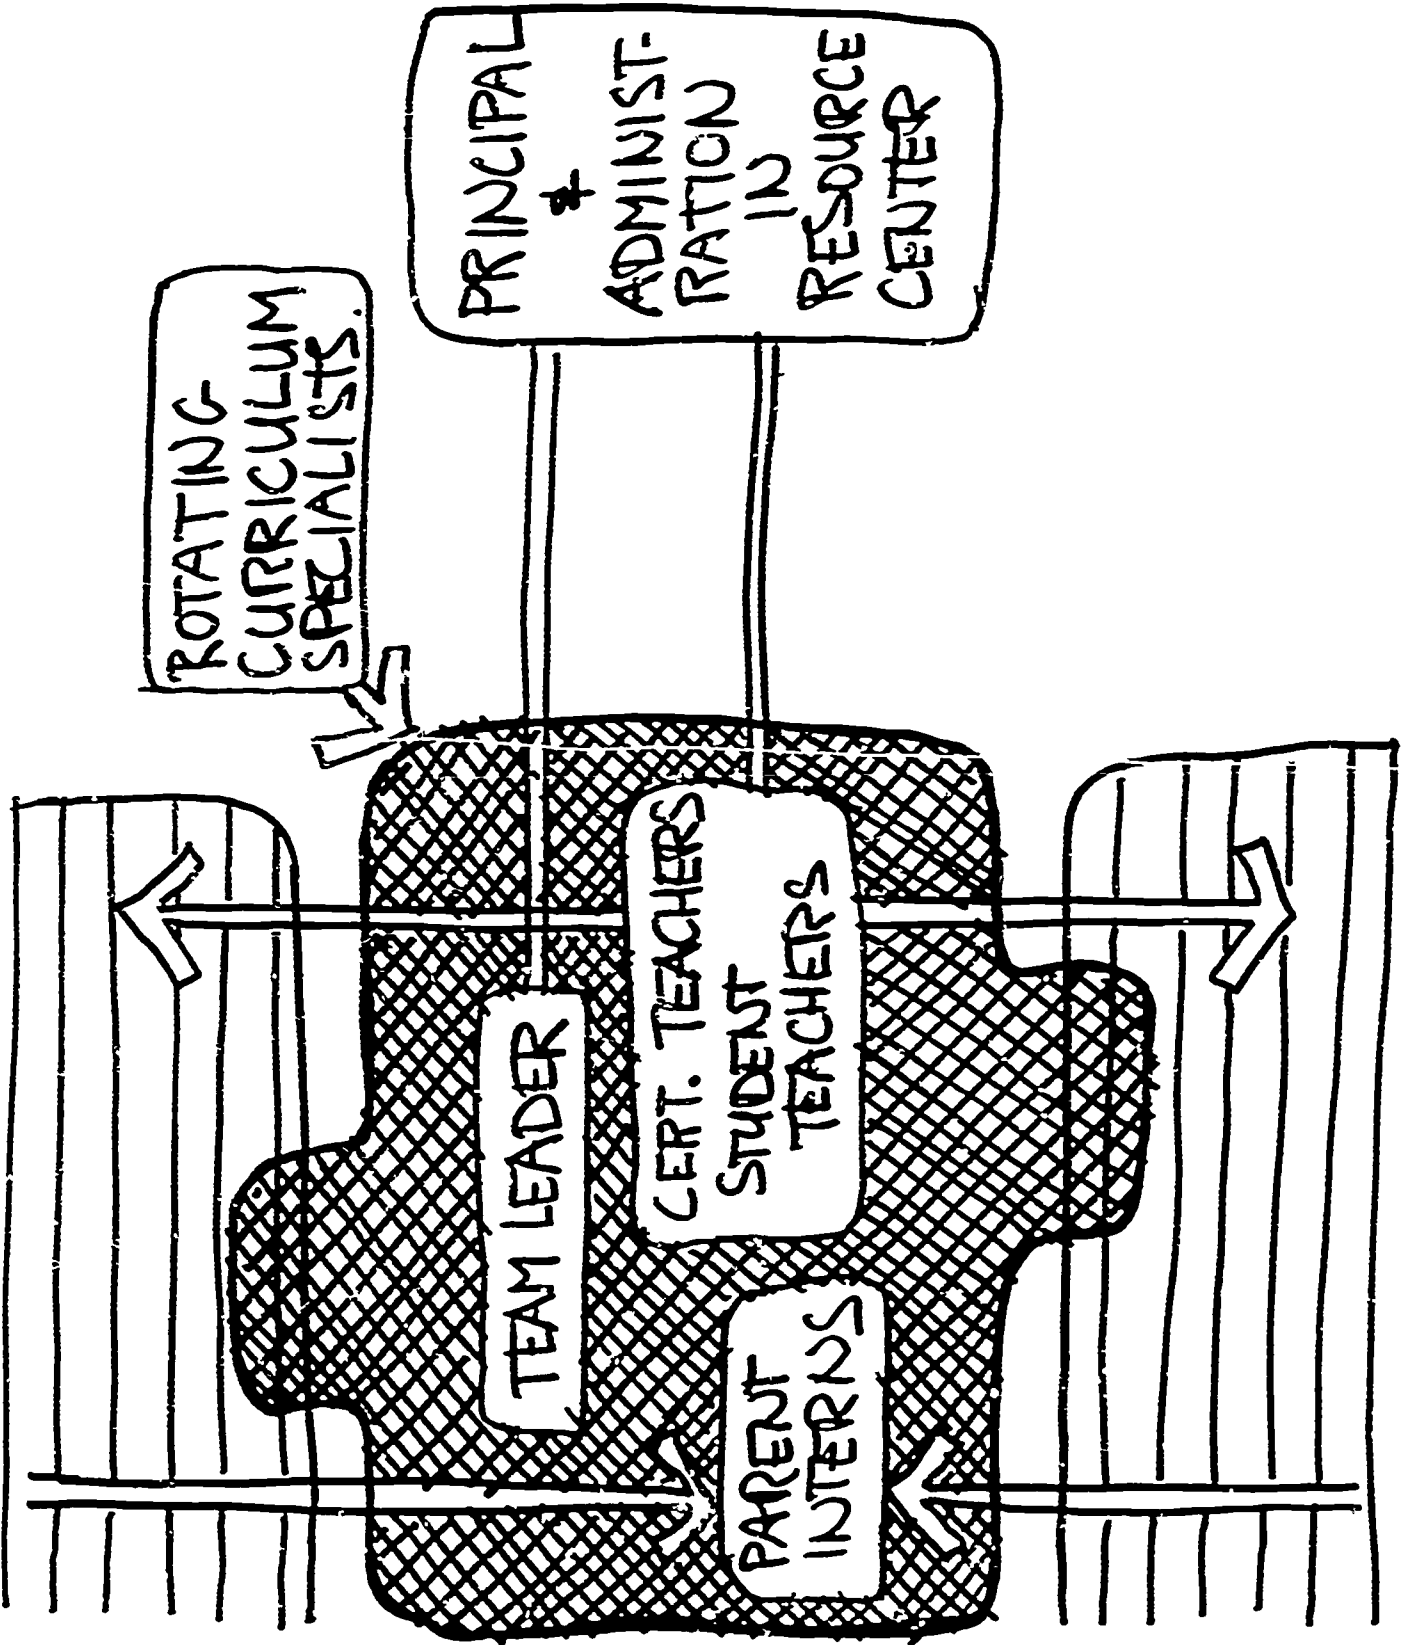 PRINCIPAL
+
ADMINIST-
RATION
IN
RESOURCE
CENTER
ROTATING
CURRICULUM
SPECIALISTS.
TEAM LEADER
CERT. TEACHERS
STUDENT
TEACHERS
PARENT
INTERNS